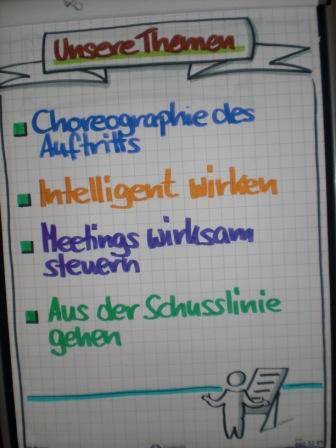 Unsere Themen
Choreographie des
Auftritts
Intelligent wirken
Meetings wirksam
steuern
Aus der Schusslinie
gehen